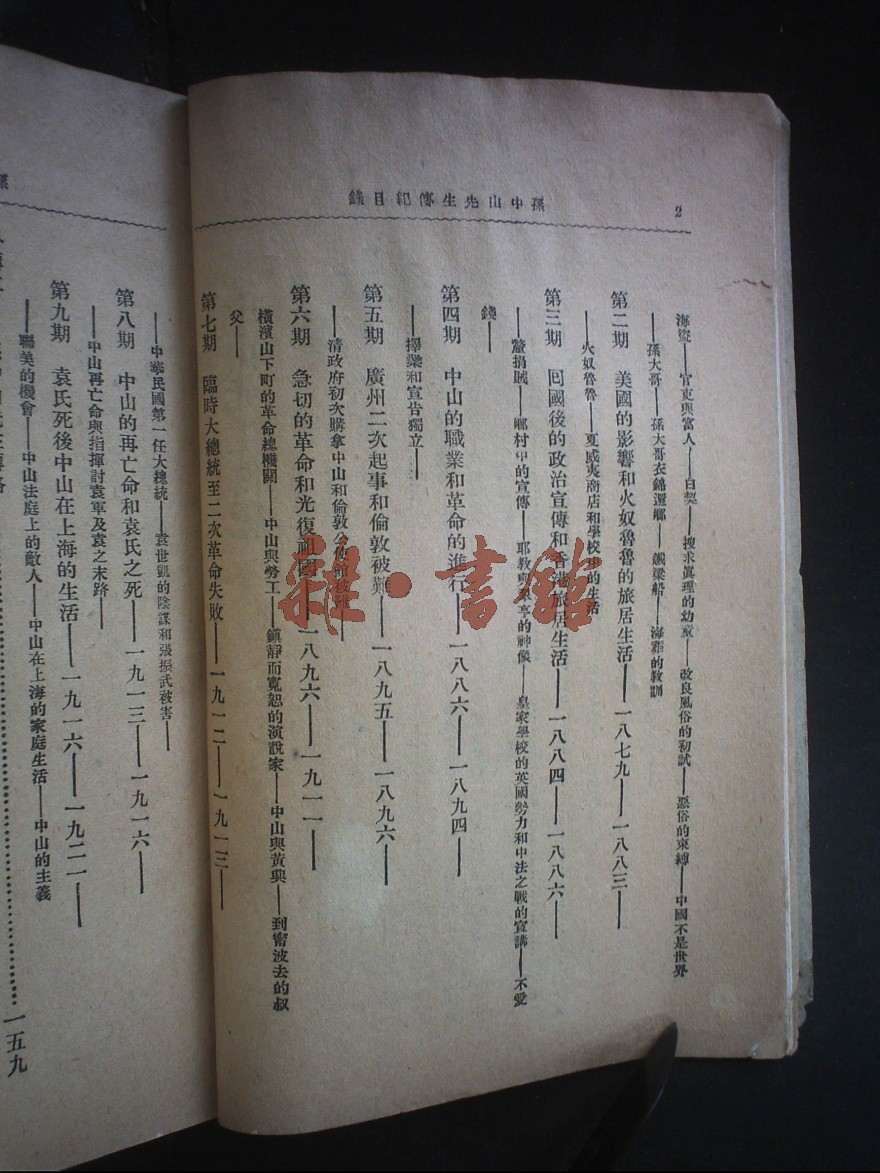 孫中山先生傳紀目錄
2
海盜——官吏與富人——白契——搜求眞理的幼童——改良風俗的初試——惡俗的束縛——中國不是世界
——孫大哥——孫大哥衣錦還鄉——鐵梁船——海葬的教訓
第二期 美國的影響和火奴魯魯的旅居生活——一八七九——一八八三——
火奴魯魯——夏威夷商店和學校中的生活
第三期 囘國後的政治宣傳和香港旅居生活——一八八四——一八八六——
——釐捐賊——鄉村中的宣傳——耶教與 的神像——皇家學校的英國勢力和中法之戰的宣講——不愛
錢——
第四期 中山的職業和革命的進行——一八八六——一八九四——
——擇業和宣告獨立——
第五期 廣州二次起事和倫敦被難——一八九五——一八九六——
——清政府初次購拿中山和倫敦公使館被難——
第六期 急切的革命和光復祖國——一八九六——一九一一——
橫濱山下町的革命總機關——中山與勞工——鎮靜而寬恕的演說家——中山與黃興——到甯波去的叔
父——
第七期 臨時大總統至二次革命失敗——一九一二——一九一三——
——中華民國第一任大總統——袁世凱的陰謀和張振武被害——
第八期 中山的再亡命和袁氏之死——一九一三——一九一六——
——中山再亡命與指揮討袁軍及袁之末路——
第九期 袁氏死後中山在上海的生活——一九一六——一九二一——
——聯美的機會——中山法庭上的敵人——中山在上海的家庭生活——中山的主義
一五九
雜·書館